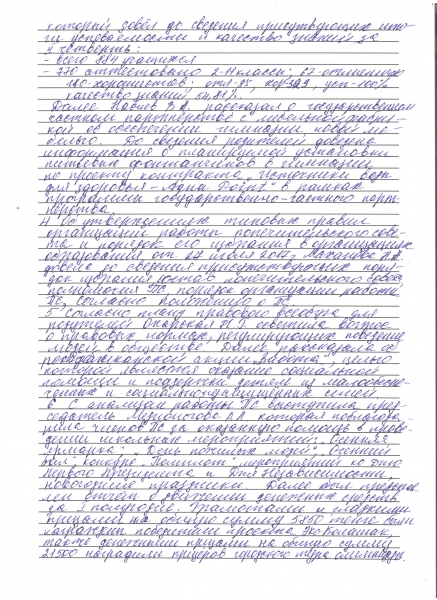 который довёл до сведения присутствующих ито-
ги успеваемости и качество знаний за
II четверть:
- всего 884 учащихся
- 770 аттестовано 2-11 класс: 67-отличники
качество знаний
Далее рассказал о государственном
частном партнерстве с мебельной фабри-
кой об обеспечении гимназии новой ме-
белью. До сведения родителей доведена
информация о планируемой установке
питьевых фонтанчиков в гимназии
по проекту контракта "Источники воды
для здоровья - Aqua Point" в рамках
программы государственно-частного парт-
нерства.
4 Об утверждении типовых правил
организации работы попечительского сове-
та и порядок его избрания в организациях
образования от 27 июля 2017,
довела до сведения присутствующих поря-
док избрания попечительского совета
полномочия ПС, порядок организации работы
ПС, согласно положению о ПС
5 Согласно плану правового всеобуча для
родителей осветила вопрос
о правовых нормах, регулирующих поведение
людей в обществе. Далее рассказала о
республиканской акции "Забота", целью
которой является оказание социальной
помощи и поддержки детям из малообеспе-
ченных и социальнонезащищенных семей
6. С анализом работы ПС выступила пред-
седатель которая поблагода-
рила членов ПС за оказанную помощь в прове-
дении школьных мероприятий: "Осенняя
ярмарка", "День пожилых людей", Осенний
бал, конкурс мероприятий ко дню
первого Президента и Дня Независимости
новогодние праздники. Далее был представ-
лен отчёт о движении денежных средств
за I полугодие. Грамотами и сладкими
призами на общую сумму 5850 тенге были
награждены победители проекта
также денежными призами на общую сумму
21500 наградили призеров городского тура олимпиады.